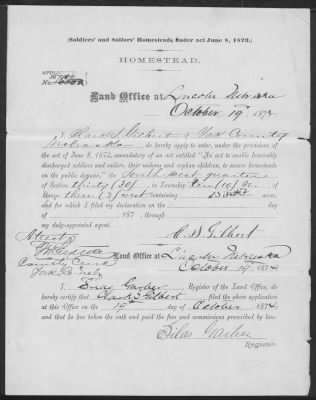 (Soldiers' and Sailors' Homestead, Under act June 8, 1872.)
HOMESTEAD.
APPLICATION
No.
Land Office at Lincoln Nebraska
October 19th 1874
I, Clark S. Gilbert of York County
Nebraska, do hereby apply to enter, under the provisions
of the act of June 8, 1872, amendatory of an act entitled "An act to enable honorably
discharged soldiers and sailors, their widows and orphan children, to secure homesteads
on the public domain," the South East quarter
of Section thirty (30), in Township ten (10) N. of
Range three (3) West containing acres,
and for which I filed my declaration on the
day of , 187 , through
my duly-appointed agent.
Attest C. S. Gilbert
County Clerk
York Co Neb
Land Office at Lincoln Nebraska
October 19, 1874
I, Silas Garber, Register of the Land Office, do
hereby certify that Clark S. Gilbert filed the above application
at this Office on the 19th day of October 1874
and that he has taken the oath and paid the fee and commissions prescribed by law.
Silas Garber
Register.